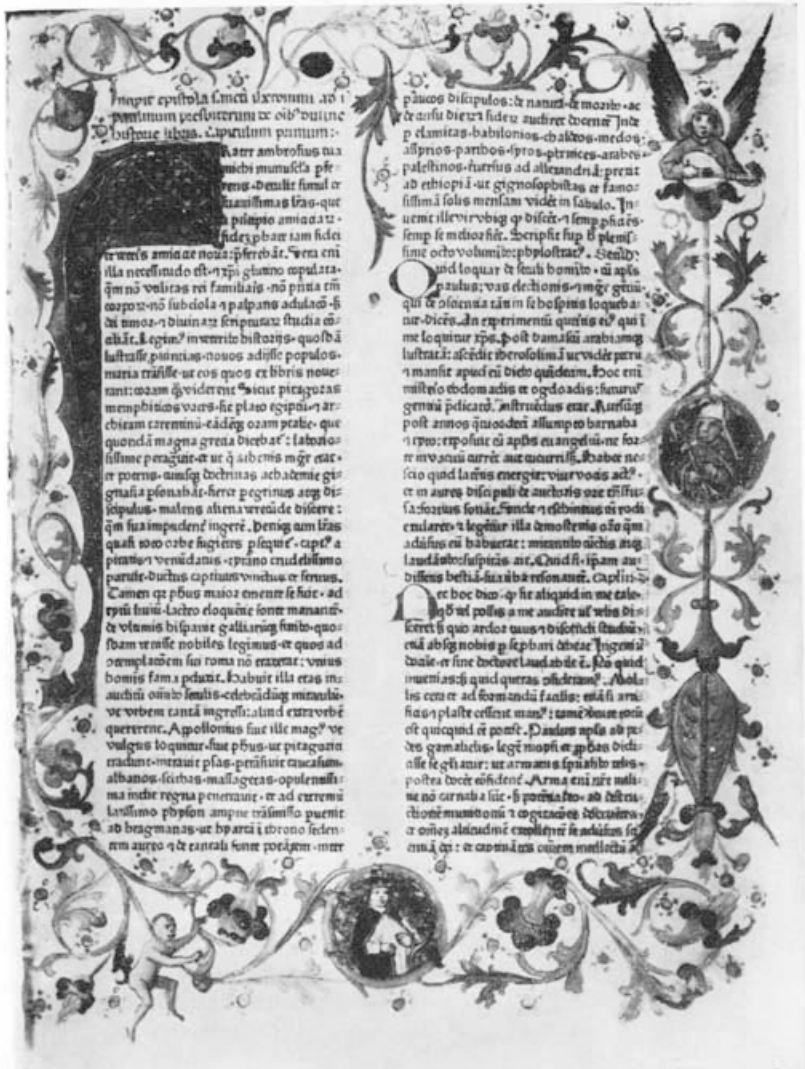 Incipit epistola sancti iheronimi ad
paulinum presbiterum de oībꝰ diuine
historie libris. Capitulum primum:·
Frater ambrosius tua
michi munuscla pfe-
rens· detulit simul et
suauissimas lr̄as· que
a pn̄cipio amiciciaꝝ·
fidē ꝓbate iam fidei
et veteris amicicie noua: p̄ferebāt. Uera eni
illa necessitudo est· ⁊ xp̄i glutino copulata·
qm̄ nō vtilitas rei familiaris· nō pn̄tia tm̄
corpoꝝ· nō subdola ⁊ palpans adulacō· ß
dei timor· ⁊ diuinaꝝ scripturaꝝ studia cō-
ciliāt. Legimꝰ in veteribꝰ historijs· quosdā
lustrasse ꝓuincias· nouos adijsse populos·
maria trāsisse· ut eos quos ex libris noue-
rant: coram q̄ꝫ viderent. Sicut pitagoras
memphiticos vates· sic plato egiptū· ⁊ ar-
chitam tarentinū· eādēꝫ oram ytalie· que
quondā magna grecia dicebat᷑: laborio-
sissime peragrauit· et ut q̄ athenis mgr̄ erat·
et potens· cuiusꝫ doctrinas achademie gi-
gnasia ꝑsonabāt· fieret ꝑegrinus atꝫ di-
scipulus· malens aliena verecūde discere:
qm̄ sua impudent᷑ ingere. Deniꝫ cum lr̄as
quasi toto orbe fugientes ꝑsequit᷑· captꝰ a
piratis ⁊ venūdatus· tyrāno crudelissimo
paruit· ductus captiuus vinctus et seruus.
Tamen qꝛ phūs maior emente se fuit· ad
tytū liuiū· lacteo eloquētie fonte manantē·
de vltimis hispanie galliaruꝫ finibꝰ· quos-
dam venisse nobiles legimus· et quos ad
ꝯtemplacōem sui roma nō traxerat: vnius
homīs fama ꝑduxit. Habuit illa etas in-
auditū omībꝰ seculis· celebrādūꝫ miraculū·
ut vrbem tantā ingressi: aliud extra vrbē
quererent. Appollonius siue ille magꝰ· ut
vulgus loquitur· siue phūs· ut pitagorici
tradunt· intrauit ꝑsas· ꝑtrāsiuit caucasum·
albanos· scithas· massagetas· opulentissi-
ma indie regna penetrauit· et ad extremū
latissimo physon ampne trāsmisso puenit
ad bragmanas· ut hyarcā ī throno seden-
tem aureo ⁊ de tantali fonte potātem· inter
paucos discipulos: de natura· de moribꝰ· ac
de cursu dieꝝ ⁊ sideꝝ audiret docentē. Inde
ꝑ elamitas· babilonios· chaldeos· medos·
assirios· parthos· syros· phenices· arabes·
palestinos· reuersus ad allexandriā· ꝑrexit
ad ethiopiā· ut gignosophistas et famo-
sissimā solis mensam vidēt in sabulo. In-
uenit ille vir vbiꝫ qd̄ discēt· ⁊ semꝑ ꝓficiēs·
semꝑ se melior fiēt. Scripsit suꝑ h̄ plenis-
sime octo voluminibꝰ: phylostratꝰ.
Quid loquar de seculi homībꝰ· cū apl̄s
paulus: vas electionis· ⁊ mgr̄ gentiū·
qui de ꝯscientia tanti in se hospitis loqueba-
tur· dicēs. An experimentū queritis eiꝰ qui ī
me loquitur xp̄s. Post damascū arabiamꝫ
lustratā: ascēdit iherosolimā ut vidēt petrū
⁊ mansit apud eū diebꝰ quīdecim. Hoc eni
misterio ebdomadis et ogdoadis: futurꝰ
gentiū p̄dicatoꝝ instruēdus erat. Rursūꝫ
post annos quatuordecim assumpto barnaba
⁊ tyto: exposuit cū apl̄is euangeliū· ne for-
te in vacuū currēt aut cucurrisꝫ. Habet ne-
scio quid latētis energie: viue vocis actꝰ·
et in aures discipuli de auctoris ore trāsfu-
sa: fortius sonat. Unde ⁊ eschinus cū rodi
exularet· ⁊ legeret᷑ illa demostenis orō qm̄
aduersus eū habuerat: mirantibꝰ cūctis atꝫ
laudātibꝰ: suspirās ait. Quid si ipam au-
dissetis bestiā· sua v̄ba resonantē. Capl̄m ij
Nec hoc dico· qꝫ sit aliquid in me tale·
qd̄ vel possis a me audire ul̓ velis di-
scere: ß quo ardor tuus ⁊ discendi studiū·
etiā absꝫ nobis ꝑ se ꝓbari debeat. Ingeniū
docile· et sine doctore laudabile ē. Nō quid
inuenias: ß quid queras ꝯsideramꝰ. Mol-
lis cera et ad formandū facilis: etiā si arti-
ficis ⁊ plaste cessent manꝰ: tamē virtute totū
est quicquid eē potest. Paulus apl̄s ad pe-
des gamalielis· legē moysi et ꝓphās didi-
cisse se gl̄iatur: ut armatus spūalibꝰ telis·
postea docēt ꝯfident᷑. Arma eni nr̄e mili-
tie nō carnalia sūt· ß potētia deo· ad destru-
ctionē munitionū ⁊ cogitacōes destruētes·
et omēꝫ altitudinē extollentē se aduersus sci-
entiā dei: et captiuātes omēm intellectū ad